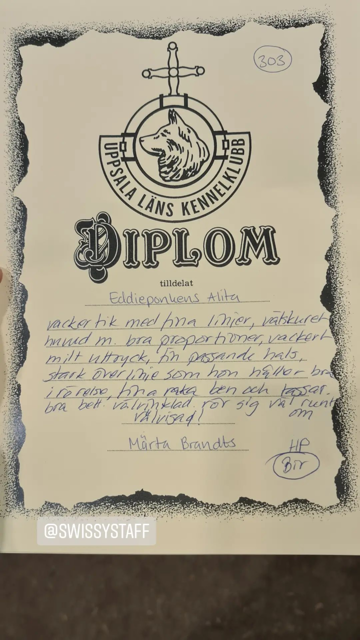 303
UPPSALA LÄNS KENNELKLUBB
DIPLOM
tilldelat
Eddieponkens Alita
vacker tik med fina linjer, välskuret
huvud m. bra proportioner, vackert
milt uttryck, fin passande hals,
stark överlinje som hon håller bra
i rörelse, fina raka ben och tassar.
bra bett välvinklad rör sig väl runt
om
välvisad!
Märta Brandts
HP
Bir
@SWISSYSTAFF